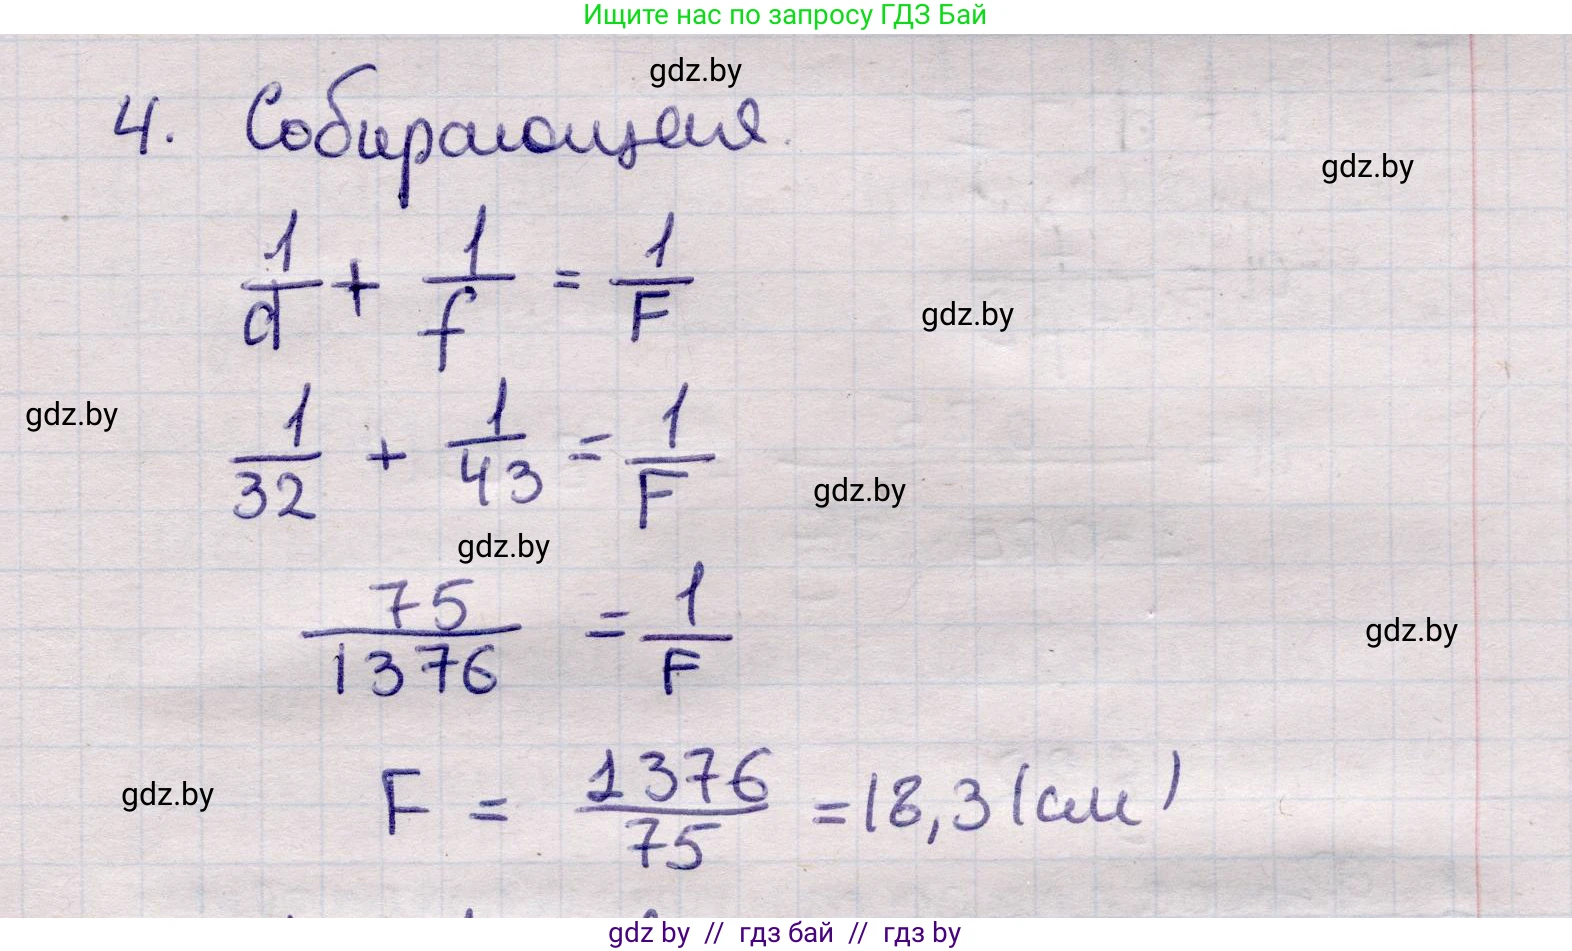 Ищите нас по запросу ГДЗ Бай
gdz.by
4. Собирающая
gdz.by
1/d + 1/f = 1/F
gdz.by
gdz.by
1/32 + 1/43 = 1/F
gdz.by
gdz.by
75/1376 = 1/F
gdz.by
gdz.by
F = 1376/75 = 18,3 (см)
gdz.by // гдз бай // гдз by